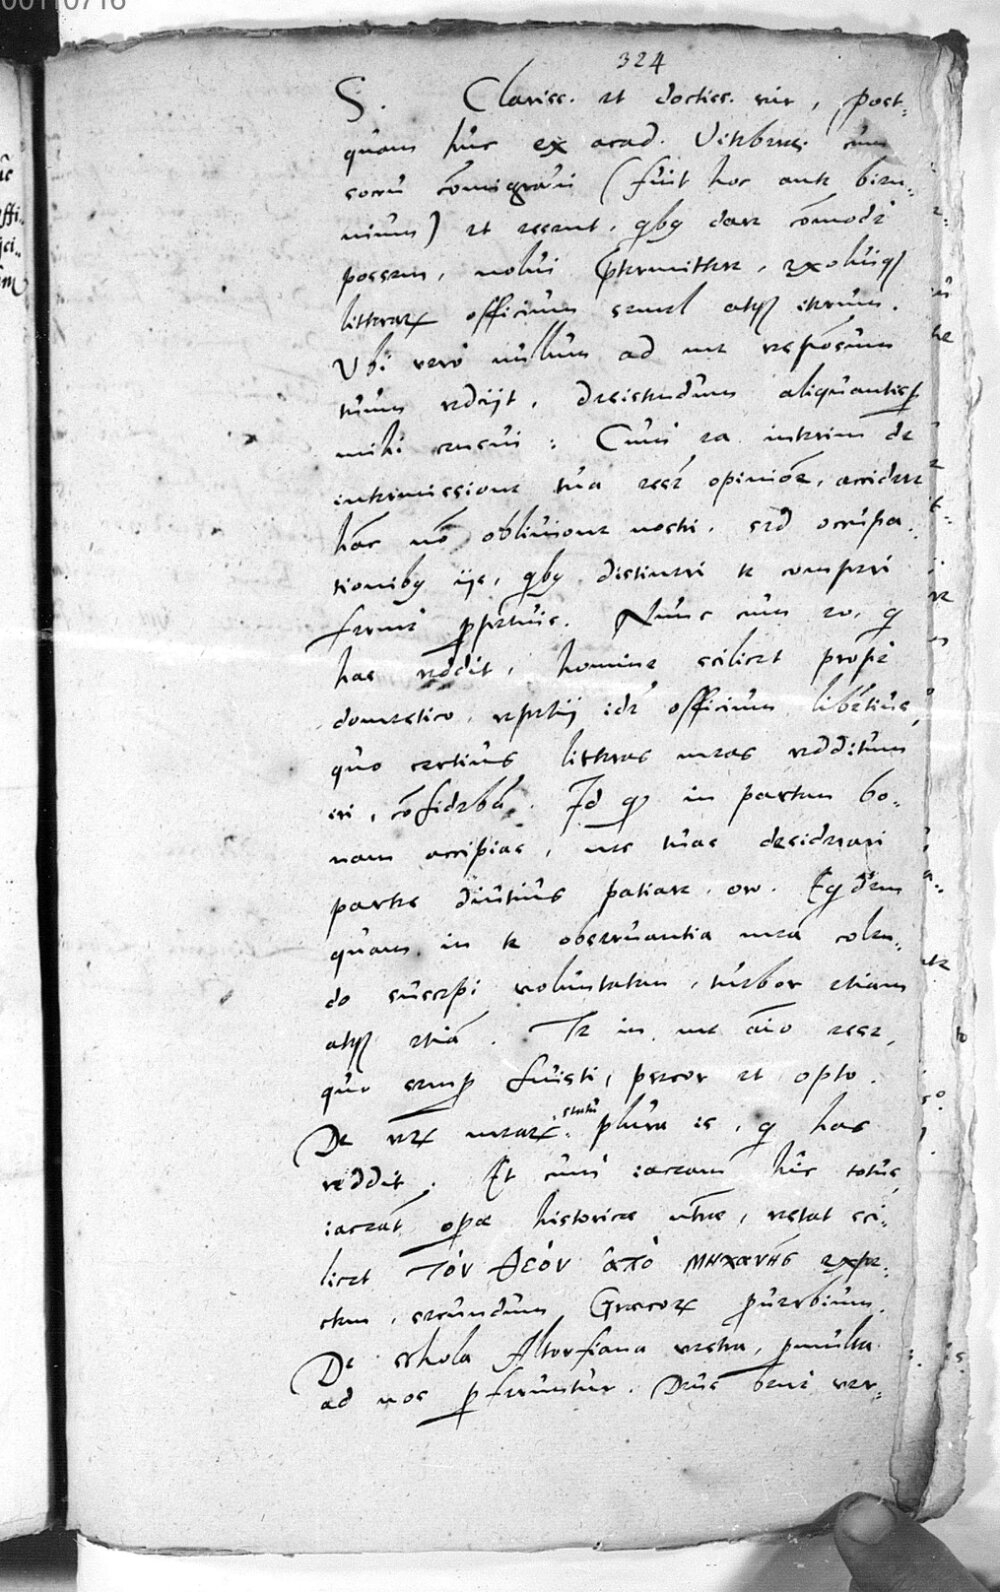 00110716
324
S. Clariss. et doctiss. vir, post-
quam huc ex acad. Vitebergẽ. cum
socru cõmigravi (fuit hoc ante bien-
nium) et essent, qbq dare cõmodè
possem, nolui p̃termittere, exoluiq̃
litterarꝝ officium semel atq̃ iterum.
Ubi verò nullum ad me respõsum
tuum rediit, desistendum aliquantisꝑ
mihi censui: Cum ea interim de
intermissione tua esse opiniõe, accidere
hãc nõ oblivione nostri, sed occupa-
tionibq ijs, qbq distineri te comperi
fermè ꝑpetuis. Nunc cum eo, q
has reddit, homine scilicet propè
domestico, repetij idẽ officium libẽtius,
quo certius litteras meas redditum
iri, cõfidebã. Id q̃ in partem bo-
nam accipias, nec tuas desiderari
partes diutius patiare, oro. Eqdem
quam in te observantia mea colen-
do suscepi voluntatem, tueborꝛ etiam
atq̃ etiã. Te in me aĩo esse,
quo semꝑ fuisti, precor et opto.
De rerꝝ mearꝝ statu plura is, q has
reddit. Et cum iaceam hic totus,
iaceãt operæ historicæ nr̃æ, restat sci-
licet τὸν θεὸν ἀπὸ μηχανῆς expe-
ctem, secundum Græcorꝝ ꝓverbium.
De schola Altorfiana vestra, ꝑmulta
ad nos ꝑferuntur. Deus benè ver-